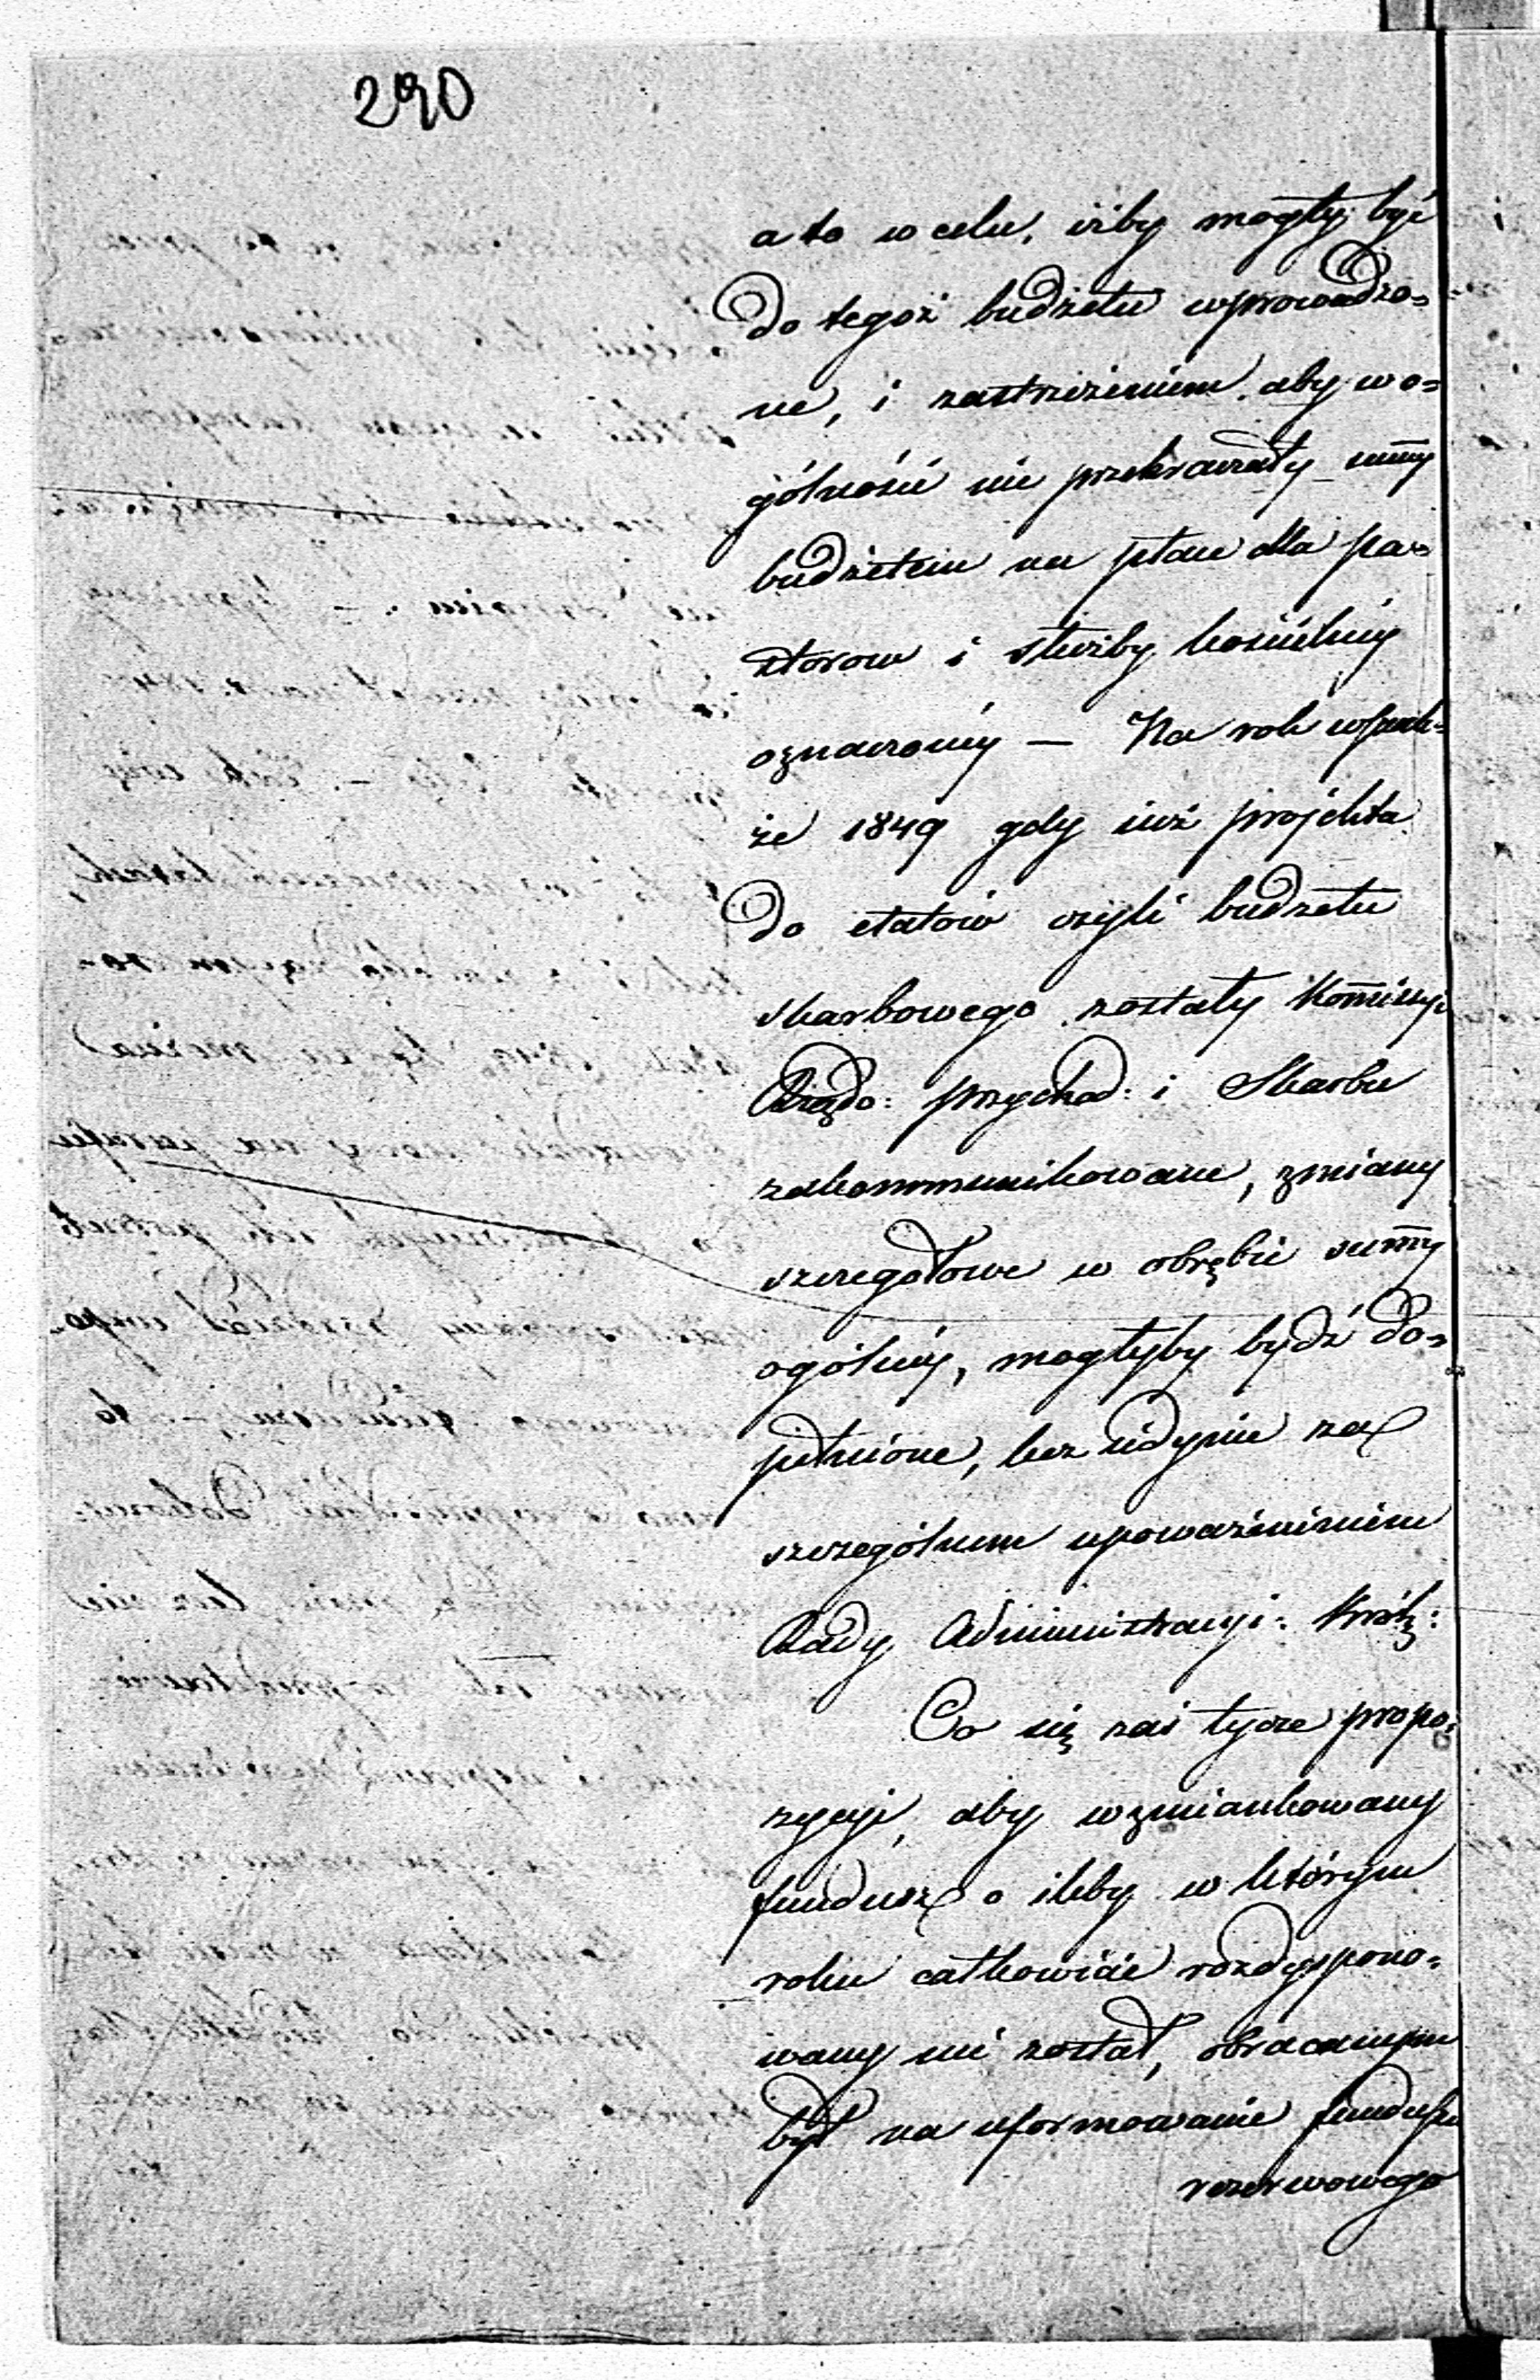 290
a to w celu, iżby mogły być
do tegoż budżetu wprowadzo=
ne, i zastrzeżeniem aby wo=
gólności nie przekraczały summy
budżetem na płace dla pa=
storow i służby kościelnéy
oznaczonéy — Na rok wszak=
że 1849 gdy iuż projekta
do etatów czyli budżetu
skarbowego zostały Kommissyi
Rządo: Przychod: i Skarbu
zakommunikowane, zmiany
szczegółowe w obrębie summy
ogólnéy, mogłyby bydź do=
pełnione, lecz iedynie za
szczególnem upoważnieniem
Rady Administracyi: Król:
Co się zaś tycze propo=
zycyi, aby wzmiankowany
fundusz o ileby w którym
roku całkowicie rozdyspono=
wany nie został, obracanym
był na uformowanie funduszu
rezerwowego